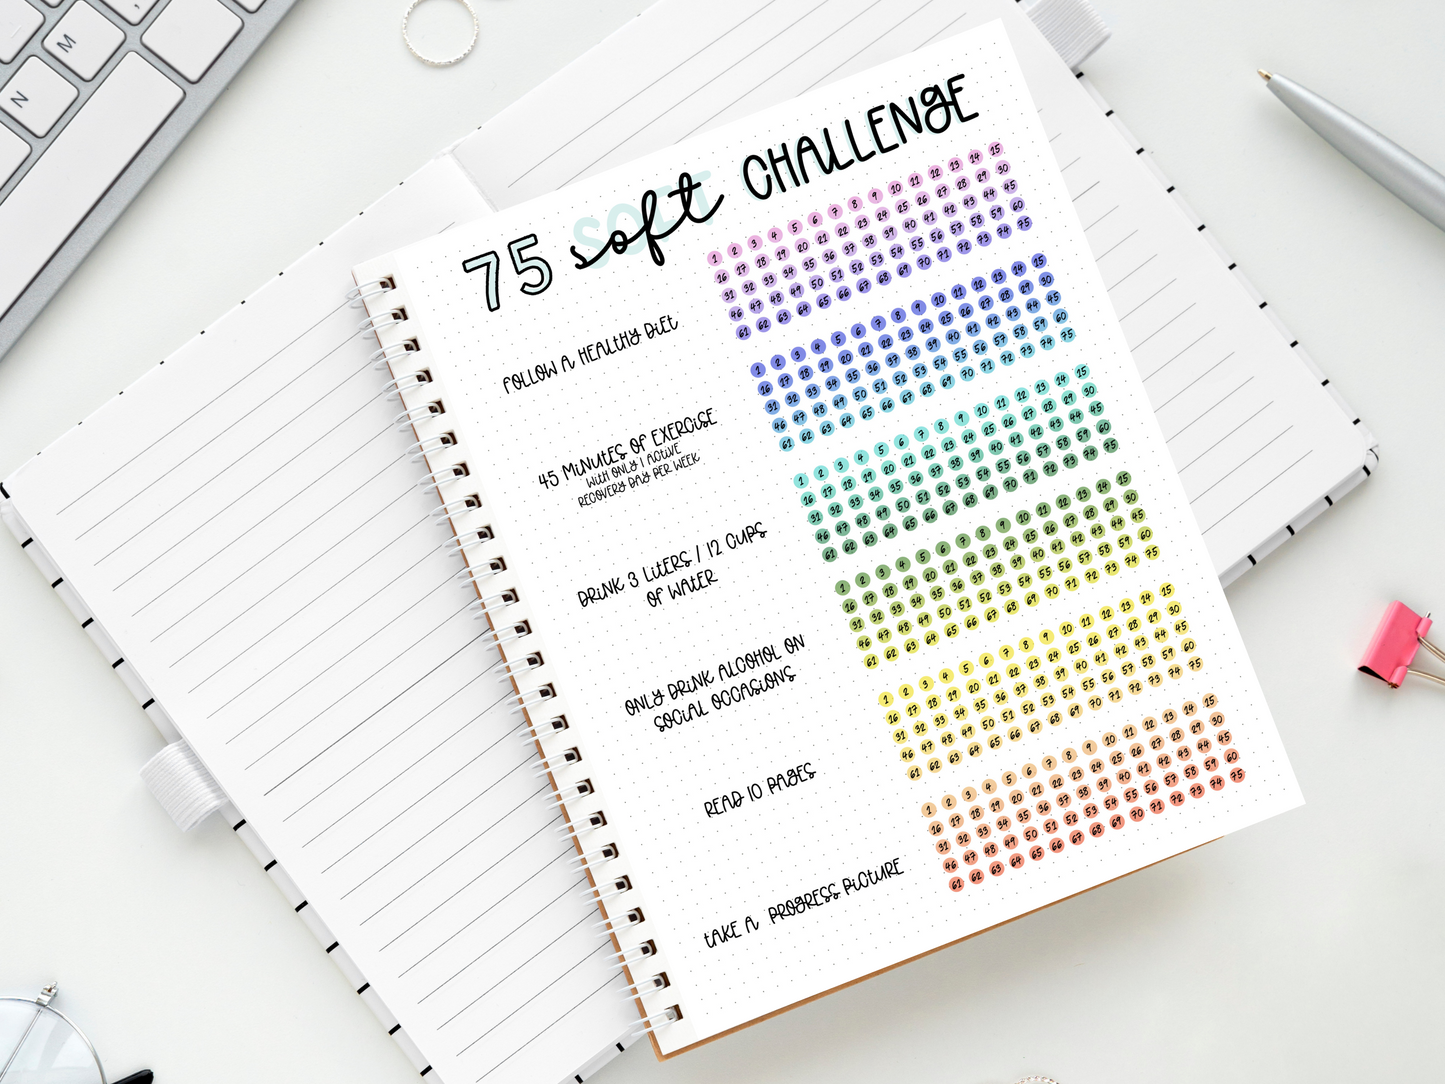 M
N
75 soft CHALLENGE
FOLLOW A HEALTHY DIET
1 2 3 4 5 6 7 8 9 10 11 12 13 14 15
16 17 18 19 20 21 22 23 24 25 26 27 28 29 30
31 32 33 34 35 36 37 38 39 40 41 42 43 44 45
46 47 48 49 50 51 52 53 54 55 56 57 58 59 60
61 62 63 64 65 66 67 68 69 70 71 72 73 74 75
45 MINUTES OF EXERCISE
WITH ONLY 1 ACTIVE
RECOVERY DAY PER WEEK
1 2 3 4 5 6 7 8 9 10 11 12 13 14 15
16 17 18 19 20 21 22 23 24 25 26 27 28 29 30
31 32 33 34 35 36 37 38 39 40 41 42 43 44 45
46 47 48 49 50 51 52 53 54 55 56 57 58 59 60
61 62 63 64 65 66 67 68 69 70 71 72 73 74 75
DRINK 3 LITERS / 12 CUPS
OF WATER
1 2 3 4 5 6 7 8 9 10 11 12 13 14 15
16 17 18 19 20 21 22 23 24 25 26 27 28 29 30
31 32 33 34 35 36 37 38 39 40 41 42 43 44 45
46 47 48 49 50 51 52 53 54 55 56 57 58 59 60
61 62 63 64 65 66 67 68 69 70 71 72 73 74 75
ONLY DRINK ALCOHOL ON
SOCIAL OCCASIONS
1 2 3 4 5 6 7 8 9 10 11 12 13 14 15
16 17 18 19 20 21 22 23 24 25 26 27 28 29 30
31 32 33 34 35 36 37 38 39 40 41 42 43 44 45
46 47 48 49 50 51 52 53 54 55 56 57 58 59 60
61 62 63 64 65 66 67 68 69 70 71 72 73 74 75
READ 10 PAGES
1 2 3 4 5 6 7 8 9 10 11 12 13 14 15
16 17 18 19 20 21 22 23 24 25 26 27 28 29 30
31 32 33 34 35 36 37 38 39 40 41 42 43 44 45
46 47 48 49 50 51 52 53 54 55 56 57 58 59 60
61 62 63 64 65 66 67 68 69 70 71 72 73 74 75
TAKE A PROGRESS PICTURE
1 2 3 4 5 6 7 8 9 10 11 12 13 14 15
16 17 18 19 20 21 22 23 24 25 26 27 28 29 30
31 32 33 34 35 36 37 38 39 40 41 42 43 44 45
46 47 48 49 50 51 52 53 54 55 56 57 58 59 60
61 62 63 64 65 66 67 68 69 70 71 72 73 74 75